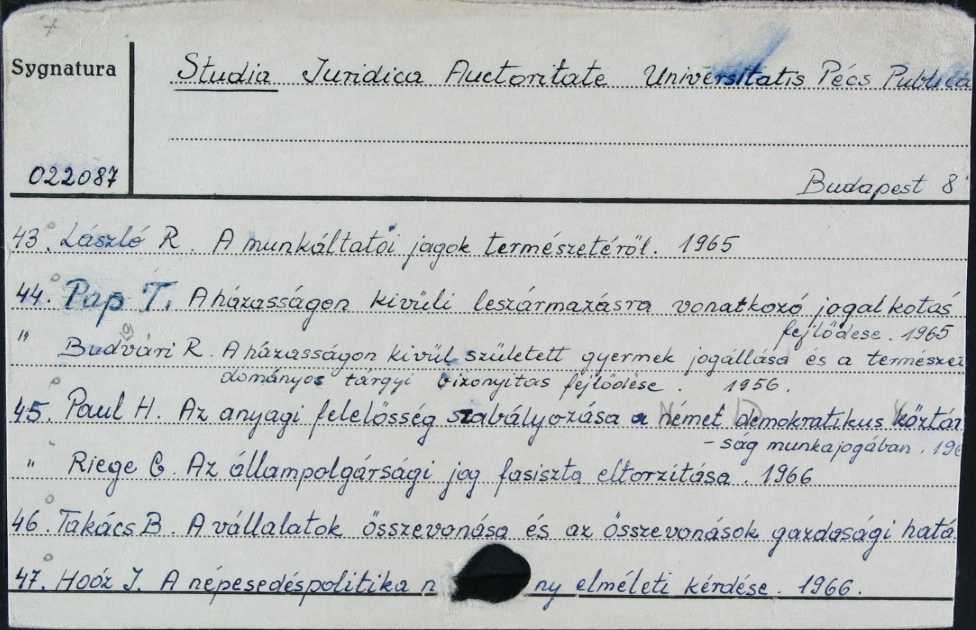 Sygnatura
Studia Juridica Auctoritate Universitatis Pécs Publica
022087
Budapest 8°
43. László R. A munkáltatói jagok természetéről. 1965
44. Pap T. A házasságon kivüli leszármazásra vonatkozó jogalkotás
fejlődése. 1965
" Budvári R. A házasságon kivül született gyermek jogállása és a természet
dományos tárgyi bizonyitas fejlődése. 1956.
45. Paul H. Az anyagi felelősség szabályozása a Német demokratikus köztár
-ság munkajogában. 196
" Riege G. Az állampolgársági jog fasiszta eltorzitása. 1966
46. Takács B. A vállalatok összevonása és az összevonások gazdasági hatá
47. Hoóz I. A népesedéspolitika n ny elméleti kérdése. 1966.